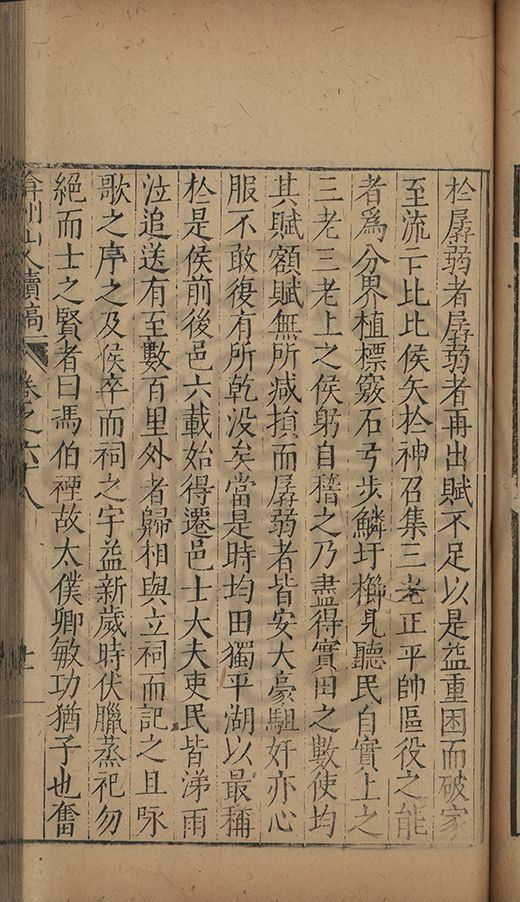 於孱弱者孱弱者再出賦不足以是益重困而破家
至流亡比比侯矢於神召集三老正平帥區役之能
者爲分界植標竅石弓步鱗圩櫛見聽民自實上之
三老三老上之侯躬自稽之乃盡得實田之數使均
其賦額賦無所减損而孱弱者皆安大豪駔奸亦心
服不敢復有所乾没矣當是時均田獨平湖以最稱
於是侯前後邑六載始得遷邑士大夫吏民皆涕雨
泣追送有至數百里外者歸相與立祠而記之且咏
歌之序之及侯卒而祠之宇益新歲時伏臘蒸祀勿
絕而士之賢者曰馮伯禋故太僕卿敏功猶子也奮
弇州山人續稿 卷之六十八